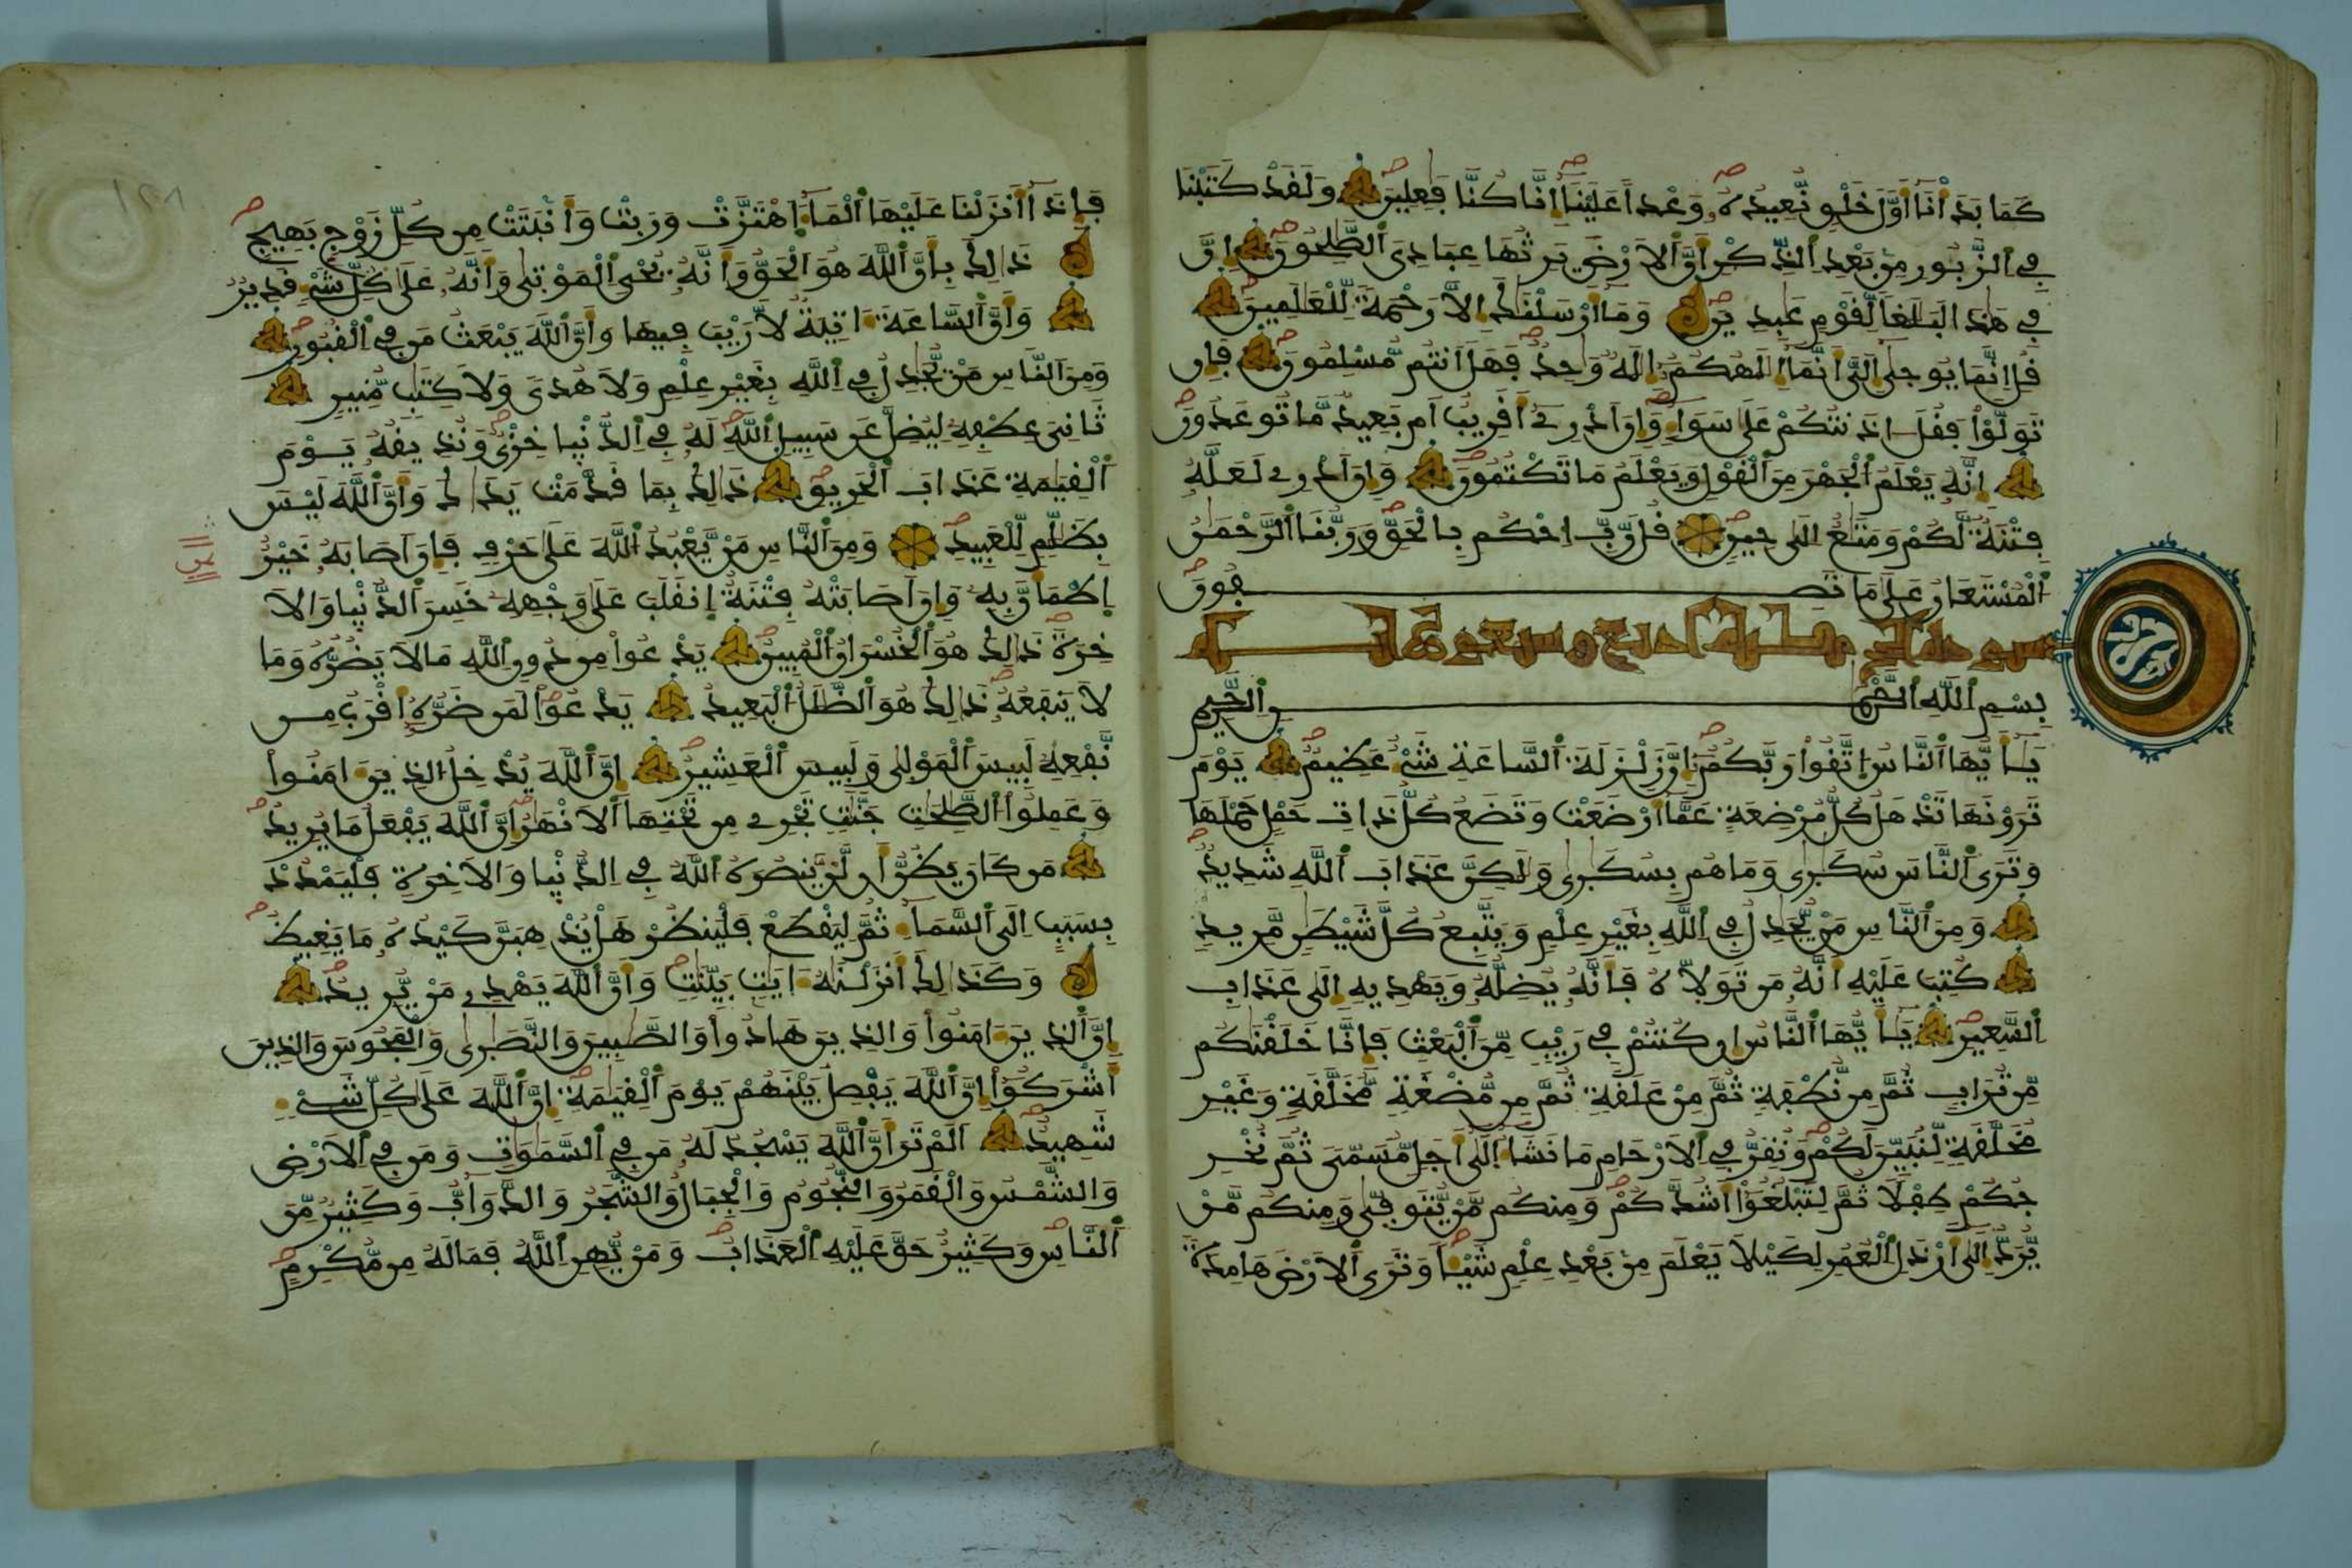 كَمَا بَدَأْنَا أَوَّلَ خَلْقٍ نُّعِيدُهُۥ وَعْداً عَلَيْنَا إِنَّا كُنَّا فَٰعِلِينَ وَلَقَدْ كَتَبْنَا
فِي اِلزَّبُورِ مِنۢ بَعْدِ اِلذِّكْرِ أَنَّ اَلَارْضَ يَرِثُهَا عِبَادِيَ اَلصَّٰلِحُونَ إِنَّ
فِي هَٰذَا لَبَلَٰغاً لِّقَوْمٍ عَٰبِدِينَ وَمَا أَرْسَلْنَٰكَ إِلَّا رَحْمَةً لِّلْعَٰلَمِينَ
قُلِ اِنَّمَا يُوحَىٰ إِلَيَّ أَنَّمَا إِلَٰهُكُمُۥ إِلَٰهٌ وَٰحِدٌ فَهَلَ اَنتُم مُّسْلِمُونَ فَإِن
تَوَلَّوْاْ فَقُلَ اٰذَنتُكُمْ عَلَىٰ سَوَآءٍ وَإِنَ اَدْرِي أَقَرِيبٌ اَم بَعِيدٌ مَّا تُوعَدُونَ
إِنَّهُۥ يَعْلَمُ اُلْجَهْرَ مِنَ اَلْقَوْلِ وَيَعْلَمُ مَا تَكْتُمُونَ وَإِنَ اَدْرِي لَعَلَّهُۥ
فِتْنَةٌ لَّكُمْ وَمَتَٰعٌ اِلَىٰ حِينٍ قُل رَّبِّ اِحْكُم بِالْحَقِّ وَرَبُّنَا اَلرَّحْمَٰنُ
اُلْمُسْتَعَانُ عَلَىٰ مَا تَصِفُونَ
بِسْمِ اِللَّهِ اِلرَّحْمَٰنِ اِلرَّحِيمِ
يَٰأَيُّهَا اَلنَّاسُ اُتَّقُواْ رَبَّكُمُۥ إِنَّ زَلْزَلَةَ اَلسَّاعَةِ شَيْءٌ عَظِيمٌ يَوْمَ
تَرَوْنَهَا تَذْهَلُ كُلُّ مُرْضِعَةٍ عَمَّا أَرْضَعَتْ وَتَضَعُ كُلُّ ذَاتِ حَمْلٍ حَمْلَهَا
وَتَرَى اَلنَّاسَ سُكَٰرَىٰ وَمَا هُم بِسُكَٰرَىٰ وَلَٰكِنَّ عَذَابَ اَللَّهِ شَدِيدٌ
وَمِنَ اَلنَّاسِ مَنْ يُّجَٰدِلُ فِي اِللَّهِ بِغَيْرِ عِلْمٍ وَيَتَّبِعُ كُلَّ شَيْطَٰنٍ مَّرِيدٍ
كُتِبَ عَلَيْهِ أَنَّهُۥ مَن تَوَلَّاهُ فَأَنَّهُۥ يُضِلُّهُۥ وَيَهْدِيهِ إِلَىٰ عَذَابِ
اِلسَّعِيرِ يَٰأَيُّهَا اَلنَّاسُ إِن كُنتُمْ فِي رَيْبٍ مِّنَ اَلْبَعْثِ فَإِنَّا خَلَقْنَٰكُم
مِّن تُرَابٍ ثُمَّ مِن نُّطْفَةٍ ثُمَّ مِنْ عَلَقَةٍ ثُمَّ مِن مُّضْغَةٍ مُّخَلَّقَةٍ وَغَيْرِ
مُخَلَّقَةٍ لِّنُبَيِّنَ لَكُمْ وَنُقِرُّ فِي اِلَارْحَامِ مَا نَشَآءُ إِلَىٰ أَجَلٍ مُّسَمّىً ثُمَّ نُخْرِ
جُكُمْ طِفْلًا ثُمَّ لِتَبْلُغُواْ أَشُدَّكُمْ وَمِنكُم مَّنْ يُّتَوَفَّىٰ وَمِنكُم مَّنْ
يُّرَدُّ إِلَىٰ أَرْذَلِ اِلْعُمُرِ لِكَيْلَا يَعْلَمَ مِنۢ بَعْدِ عِلْمٍ شَيْـاً وَتَرَى اَلَارْضَ هَامِدَةً
فَإِذَا أَنزَلْنَا عَلَيْهَا اَلْمَآءَ اَهْتَزَّتْ وَرَبَتْ وَأَنۢبَتَتْ مِن كُلِّ زَوْجٍ بَهِيجٍ
ذَٰلِكَ بِأَنَّ اَللَّهَ هُوَ اَلْحَقُّ وَأَنَّهُۥ يُحْيِ اِلْمَوْتَىٰ وَأَنَّهُۥ عَلَىٰ كُلِّ شَيْءٍ قَدِيرٌ
وَأَنَّ اَلسَّاعَةَ ءَاتِيَةٌ لَّا رَيْبَ فِيهَا وَأَنَّ اَللَّهَ يَبْعَثُ مَن فِي اِلْقُبُورِ
وَمِنَ اَلنَّاسِ مَنْ يُّجَٰدِلُ فِي اِللَّهِ بِغَيْرِ عِلْمٍ وَلَا هُدىً وَلَا كِتَٰبٍ مُّنِيرٍ
ثَانِيَ عِطْفِهِۦ لِيُضِلَّ عَن سَبِيلِ اِللَّهِ لَهُۥ فِي اِلدُّنْيَا خِزْيٌ وَنُذِيقُهُۥ يَوْمَ
اَلْقِيَٰمَةِ عَذَابَ اَلْحَرِيقِ ذَٰلِكَ بِمَا قَدَّمَتْ يَدَاكَ وَأَنَّ اَللَّهَ لَيْسَ
بِظَلَّٰمٍ لِّلْعَبِيدِ وَمِنَ اَلنَّاسِ مَنْ يَّعْبُدُ اُللَّهَ عَلَىٰ حَرْفٍ فَإِنَ اَصَابَهُۥ خَيْرٌ
اِطْمَأَنَّ بِهِۦ وَإِنَ اَصَابَتْهُ فِتْنَةٌ اِنقَلَبَ عَلَىٰ وَجْهِهِۦ خَسِرَ اَلدُّنْيَا وَالَا
خِرَةَ ذَٰلِكَ هُوَ اَلْخُسْرَانُ اُلْمُبِينُ يَدْعُواْ مِن دُونِ اِللَّهِ مَا لَا يَضُرُّهُۥ وَمَا
لَا يَنفَعُهُۥ ذَٰلِكَ هُوَ اَلضَّلَٰلُ اُلْبَعِيدُ يَدْعُواْ لَمَن ضَرُّهُۥ أَقْرَبُ مِن
نَّفْعِهِۦ لَبِيسَ اَلْمَوْلَىٰ وَلَبِيسَ اَلْعَشِيرُ إِنَّ اَللَّهَ يُدْخِلُ اُلذِينَ ءَامَنُواْ
وَعَمِلُواْ اُلصَّٰلِحَٰتِ جَنَّٰتٍ تَجْرِي مِن تَحْتِهَا اَلَانْهَٰرُ إِنَّ اَللَّهَ يَفْعَلُ مَا يُرِيدُ
مَن كَانَ يَظُنُّ أَن لَّنْ يَّنصُرَهُ اُللَّهُ فِي اِلدُّنْيَا وَالَاخِرَةِ فَلْيَمْدُدْ
بِسَبَبٍ اِلَى اَلسَّمَآءِ ثُمَّ لِيَقْطَعْ فَلْيَنظُرْ هَلْ يُذْهِبَنَّ كَيْدُهُۥ مَا يَغِيظُ
وَكَذَٰلِكَ أَنزَلْنَٰهُ ءَايَٰتٍ بَيِّنَٰتٍ وَأَنَّ اَللَّهَ يَهْدِي مَنْ يُّرِيدُ
إِنَّ اَلذِينَ ءَامَنُواْ وَالذِينَ هَادُواْ وَالصَّٰبِينَ وَالنَّصَٰرَىٰ وَالْمَجُوسَ وَالذِينَ
أَشْرَكُواْ إِنَّ اَللَّهَ يَفْصِلُ بَيْنَهُمْ يَوْمَ اَلْقِيَٰمَةِ إِنَّ اَللَّهَ عَلَىٰ كُلِّ شَيْءٍ
شَهِيدٌ اَلَمْ تَرَ أَنَّ اَللَّهَ يَسْجُدُ لَهُۥ مَن فِي اِلسَّمَٰوَٰتِ وَمَن فِي اِلَارْضِ
وَالشَّمْسُ وَالْقَمَرُ وَالنُّجُومُ وَالْجِبَالُ وَالشَّجَرُ وَالدَّوَآبُّ وَكَثِيرٌ مِّنَ
اَلنَّاسِ وَكَثِيرٌ حَقَّ عَلَيْهِ اِلْعَذَابُ وَمَنْ يُّهِنِ اِللَّهُ فَمَا لَهُۥ مِن مُّكْرِمٍ